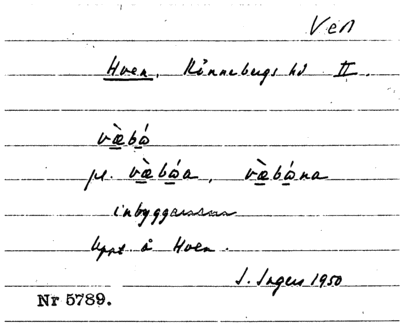 Ven
Hven, Rönnebergs hd II.
væ̀bó
pl. væ̀bóa, væ̀bóna
inbyggarna
Uppt å Hven.
I. Ingers 1950
Nr 5789.